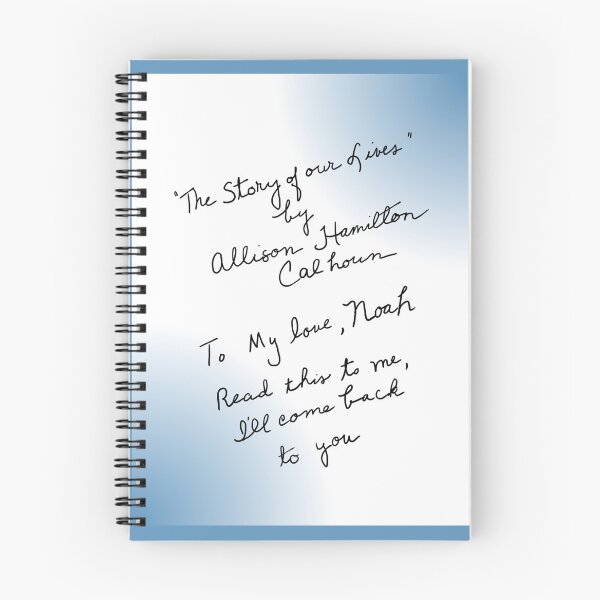 "The Story of our Lives"
by
Allison Hamilton
Calhoun
To My love, Noah
Read this to me,
I'll come back
to you